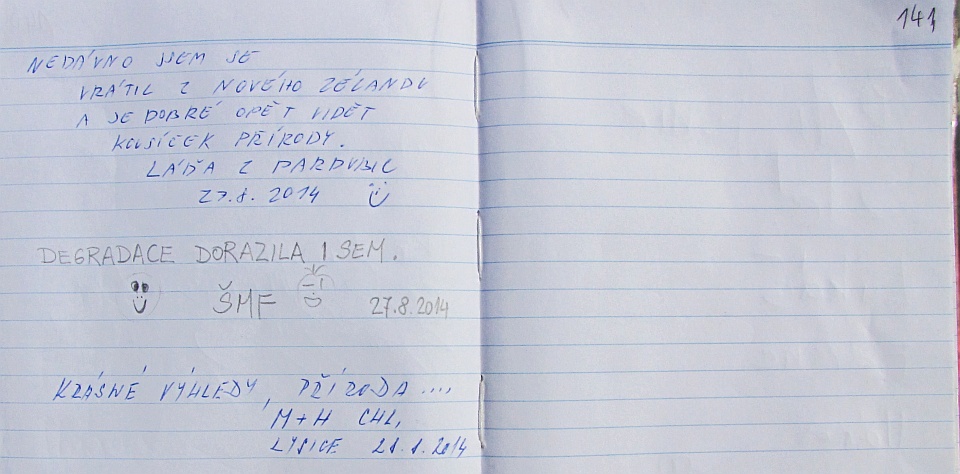 141
NEDÁVNO JSEM SE
VRÁTIL Z NOVÉHO ZÉLANDU
A JE DOBRÉ OPĚT VIDĚT
KOUSÍČEK PŘÍRODY.
LÁĎA Z PARDUBIC
27.8. 2014
DEGRADACE DORAZILA I SEM.
ŠMF 27.8.2014
KRÁSNÉ VÝHLEDY, PŘÍRODA ....
M+H CHL,
LYSICE 28.8.2014